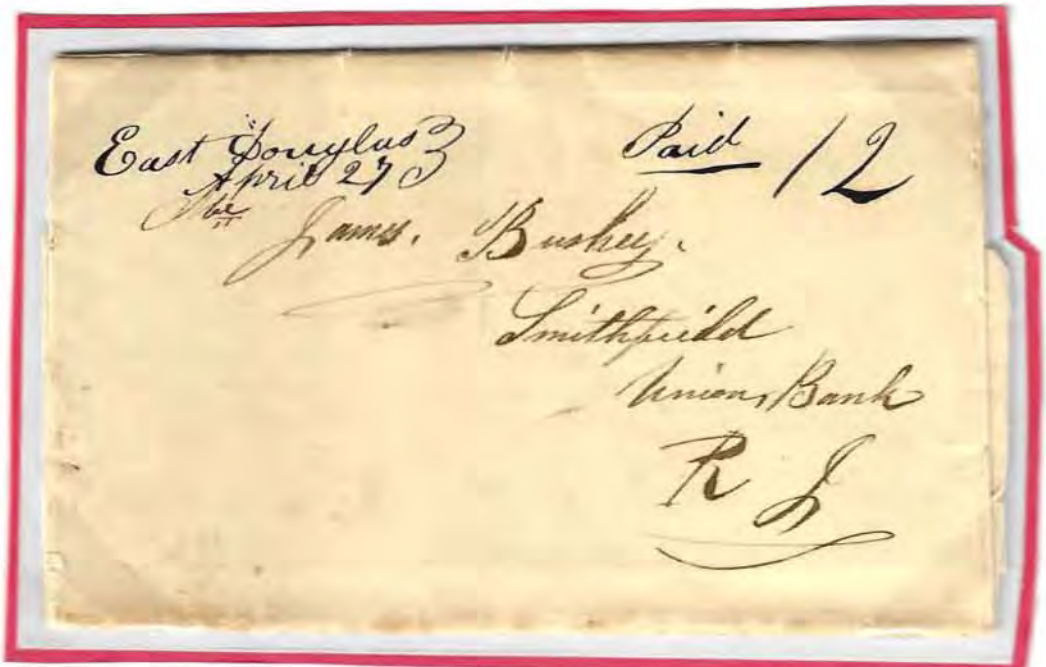 East Douglas
April 27
Paid 12
James. Bushey.
Smithfield
Union Bank
R I